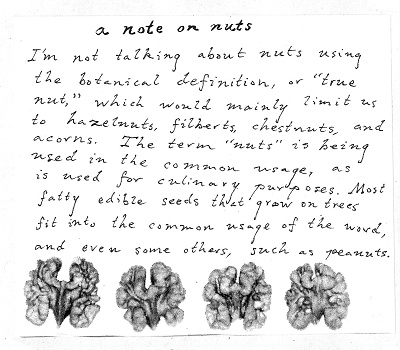 a note on nuts
I'm not talking about nuts using
the botanical definition, or "true
nut," which would mainly limit us
to hazelnuts, filberts, chestnuts, and
acorns. The term "nuts" is being
used in the common usage, as
is used for culinary purposes. Most
fatty edible seeds that grow on trees
fit into the common usage of the word,
and even some others, such as peanuts.